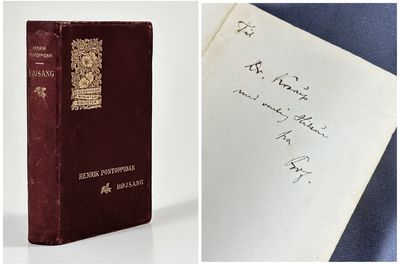 HENRIK
PONTOPPIDAN
HØJSANG
HENRIK PONTOPPIDAN
HØJSANG
Til
Dr.
med venlig Hilsen
fra
Forf.